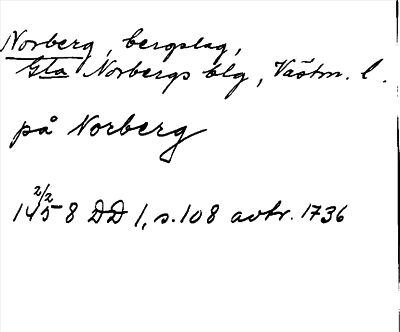 Norberg, bergslag,
Gla Norbergs blg, Västm. l.
på Norberg
2/2
1458 DD 1, s. 108 avtr. 1736